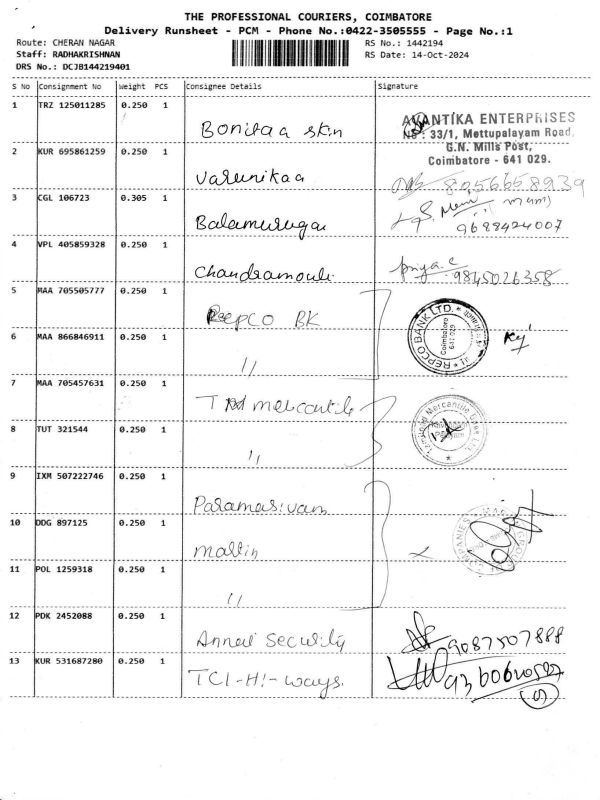 THE PROFESSIONAL COURIERS, COIMBATORE
Delivery Runsheet - PCM - Phone No.:0422-3505555 - Page No.:1
Route: CHERAN NAGAR
RS No.: 1442194
Staff: RADHAKRISHNAN
RS Date: 14-Oct-2024
DRS No.: DCJB144219401
S No Consignment No Weight PCS Consignee Details Signature
1 TRZ 125011285 0.250 1 Bonitaa skin
AVANTIKA ENTERPRISES
No : 33/1, Mettupalayam Road,
G.N. Mills Post,
Coimbatore - 641 029.
2 KUR 695861259 0.250 1 Varunikaa 8056658939
3 CGL 106723 0.305 1 Balamurugan 9688424007
4 VPL 405859328 0.250 1 Chandramouli priya.c 9845026358
5 MAA 705505777 0.250 1 Repco BK
REPCO BANK LTD.
Coimbatore
641 029
6 MAA 866846911 0.250 1 "
7 MAA 705457631 0.250 1 mercantile
Mercantile Bank Ltd.
8 TUT 321544 0.250 1 "
9 IXM 507222746 0.250 1 Paramasivam
10 DDG 897125 0.250 1 Martin
MARTIN GROUP COMPANIES
11 POL 1259318 0.250 1 "
12 PDK 2452088 0.250 1 Annai Security 9087507888
13 KUR 531687280 0.250 1 TCI-Hi-ways